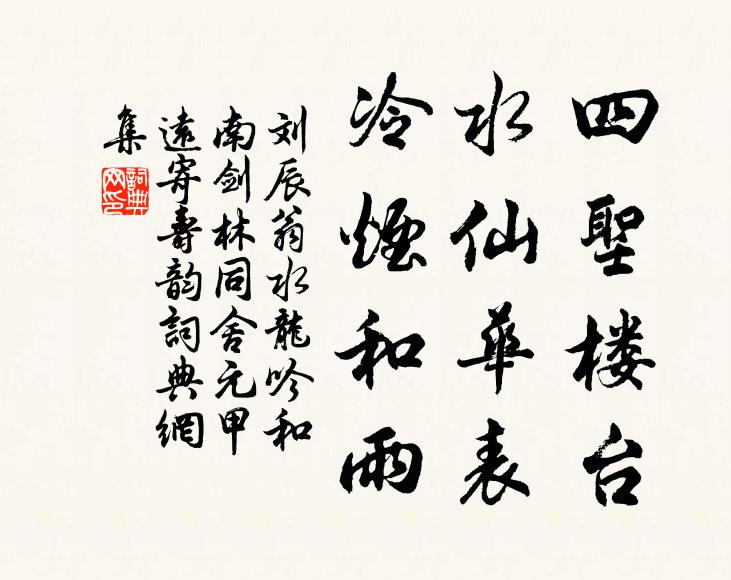 四聖楼台
水仙華表
冷煙和雨
刘辰翁水龍吟和
南剑林同舍元甲
遠寄壽韵詞典網
集
詞典
网印